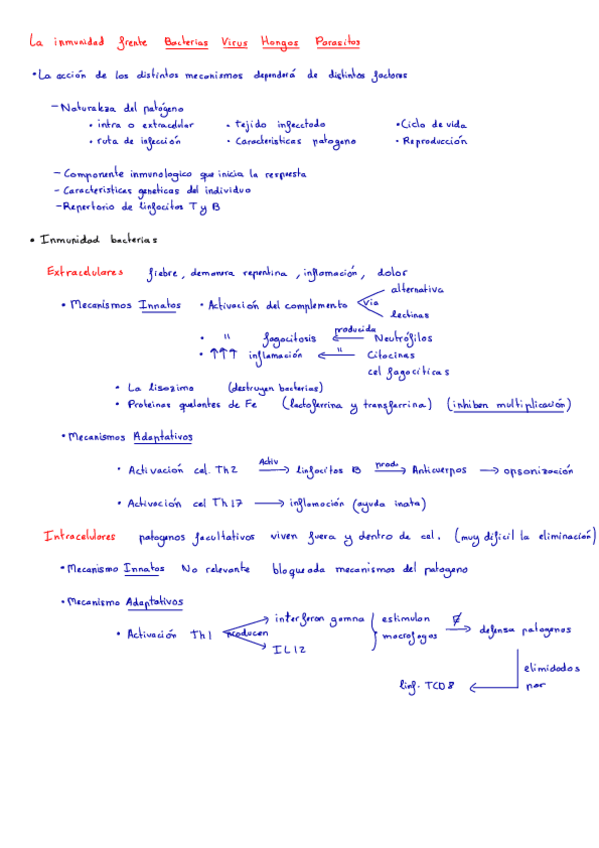 La inmunidad frente Bacterias Virus Hongos Parasitos
• La acción de los distintos mecanismos dependerá de distintos factores
- Naturaleza del patógeno
• intra o extracelular • tejido infecctado • Ciclo de vida
• ruta de infección • Caracteristicas patogeno • Reproducción
- Componente inmunologico que inicia la respuesta
- Caracteristicas geneticas del individuo
- Repertorio de linfocitos T y B
• Inmunidad bacterias
Extracelulares fiebre, demanera repentina, inflamación, dolor
• Mecanismos Innatos • Activación del complemento via alternativa
lectinas
• " fagocitosis ← producida Neutrófilos
• ↑↑↑ inflamación ← " Citocinas
cel fagocíticas
• La lisozima (destruyen bacterias)
• Proteinas quelantes de Fe (lactoferrina y transferrina) (inhiben multiplicación)
• Mecanismos Adaptativos
• Activación cel. Th2 Activ → linfocitos B prod. → Anticuerpos → opsonización
• Activación cel Th17 → inflamación (ayuda inata)
Intracelulares patogenos facultativos viven fuera y dentro de cel. (muy dificil la eliminación)
• Mecanismo Innatos No relevante bloqueada mecanismos del patogeno
• Mecanismo Adaptativos
• Activación Th1 producen → interferon gamna estimulan → defensa patogenos
→ IL12 macrofagos
elimidados
linf. TCD8 ← por